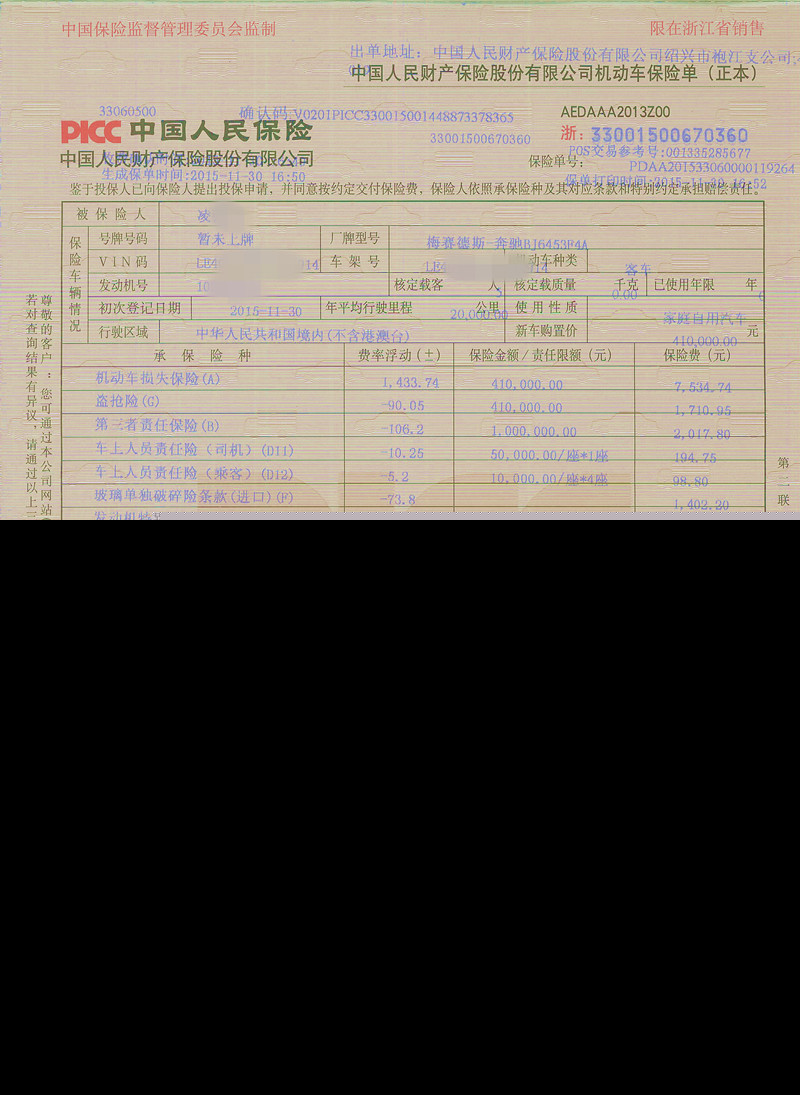 中国保险监督管理委员会监制
限在浙江省销售
出单地址：中国人民财产保险股份有限公司绍兴市袍江支公司;
中国人民财产保险股份有限公司机动车保险单（正本）
33060500
确认码:V0201PICC330015001448873378365
AEDAAA2013Z00
PICC 中国人民保险
33001500670360
浙：33001500670360
中国人民财产保险股份有限公司
POS交易参考号:001335285677
保险单号：
PDAA201533060000119264
生成保单时间:2015-11-30 16:50
保单打印时间:2015-11-30 16:52
鉴于投保人已向保险人提出投保申请，并同意按约定交付保险费，保险人依照承保险种及其对应条款和特别约定承担赔偿责任。
被保险人 凌
保险车辆情况
号牌号码 暂未上牌 厂牌型号 梅赛德斯-奔驰BJ6453F4A
VIN码 LE4 14 车架号 LE4 14 动车种类 客车
发动机号 10 核定载客 5 人 核定载质量 0.00 千克 已使用年限 0 年
初次登记日期 2015-11-30 年平均行驶里程 20,000.00 公里 使用性质 家庭自用汽车
行驶区域 中华人民共和国境内(不含港澳台) 新车购置价 410,000.00 元
承保险种 费率浮动(±) 保险金额/责任限额(元) 保险费(元)
机动车损失保险(A) 1,433.74 410,000.00 7,534.74
盗抢险(G) -90.05 410,000.00 1,710.95
第三者责任保险(B) -106.2 1,000,000.00 2,017.80
车上人员责任险（司机）(D11) -10.25 50,000.00/座*1座 194.75
车上人员责任险（乘客）(D12) -5.2 10,000.00/座*4座 98.80
玻璃单独破碎险条款(进口)(F) -73.8 1,402.20
发动机特
尊敬的客户：您可通过本公司网站
若对查询结果有异议，请通过以上三
第二联